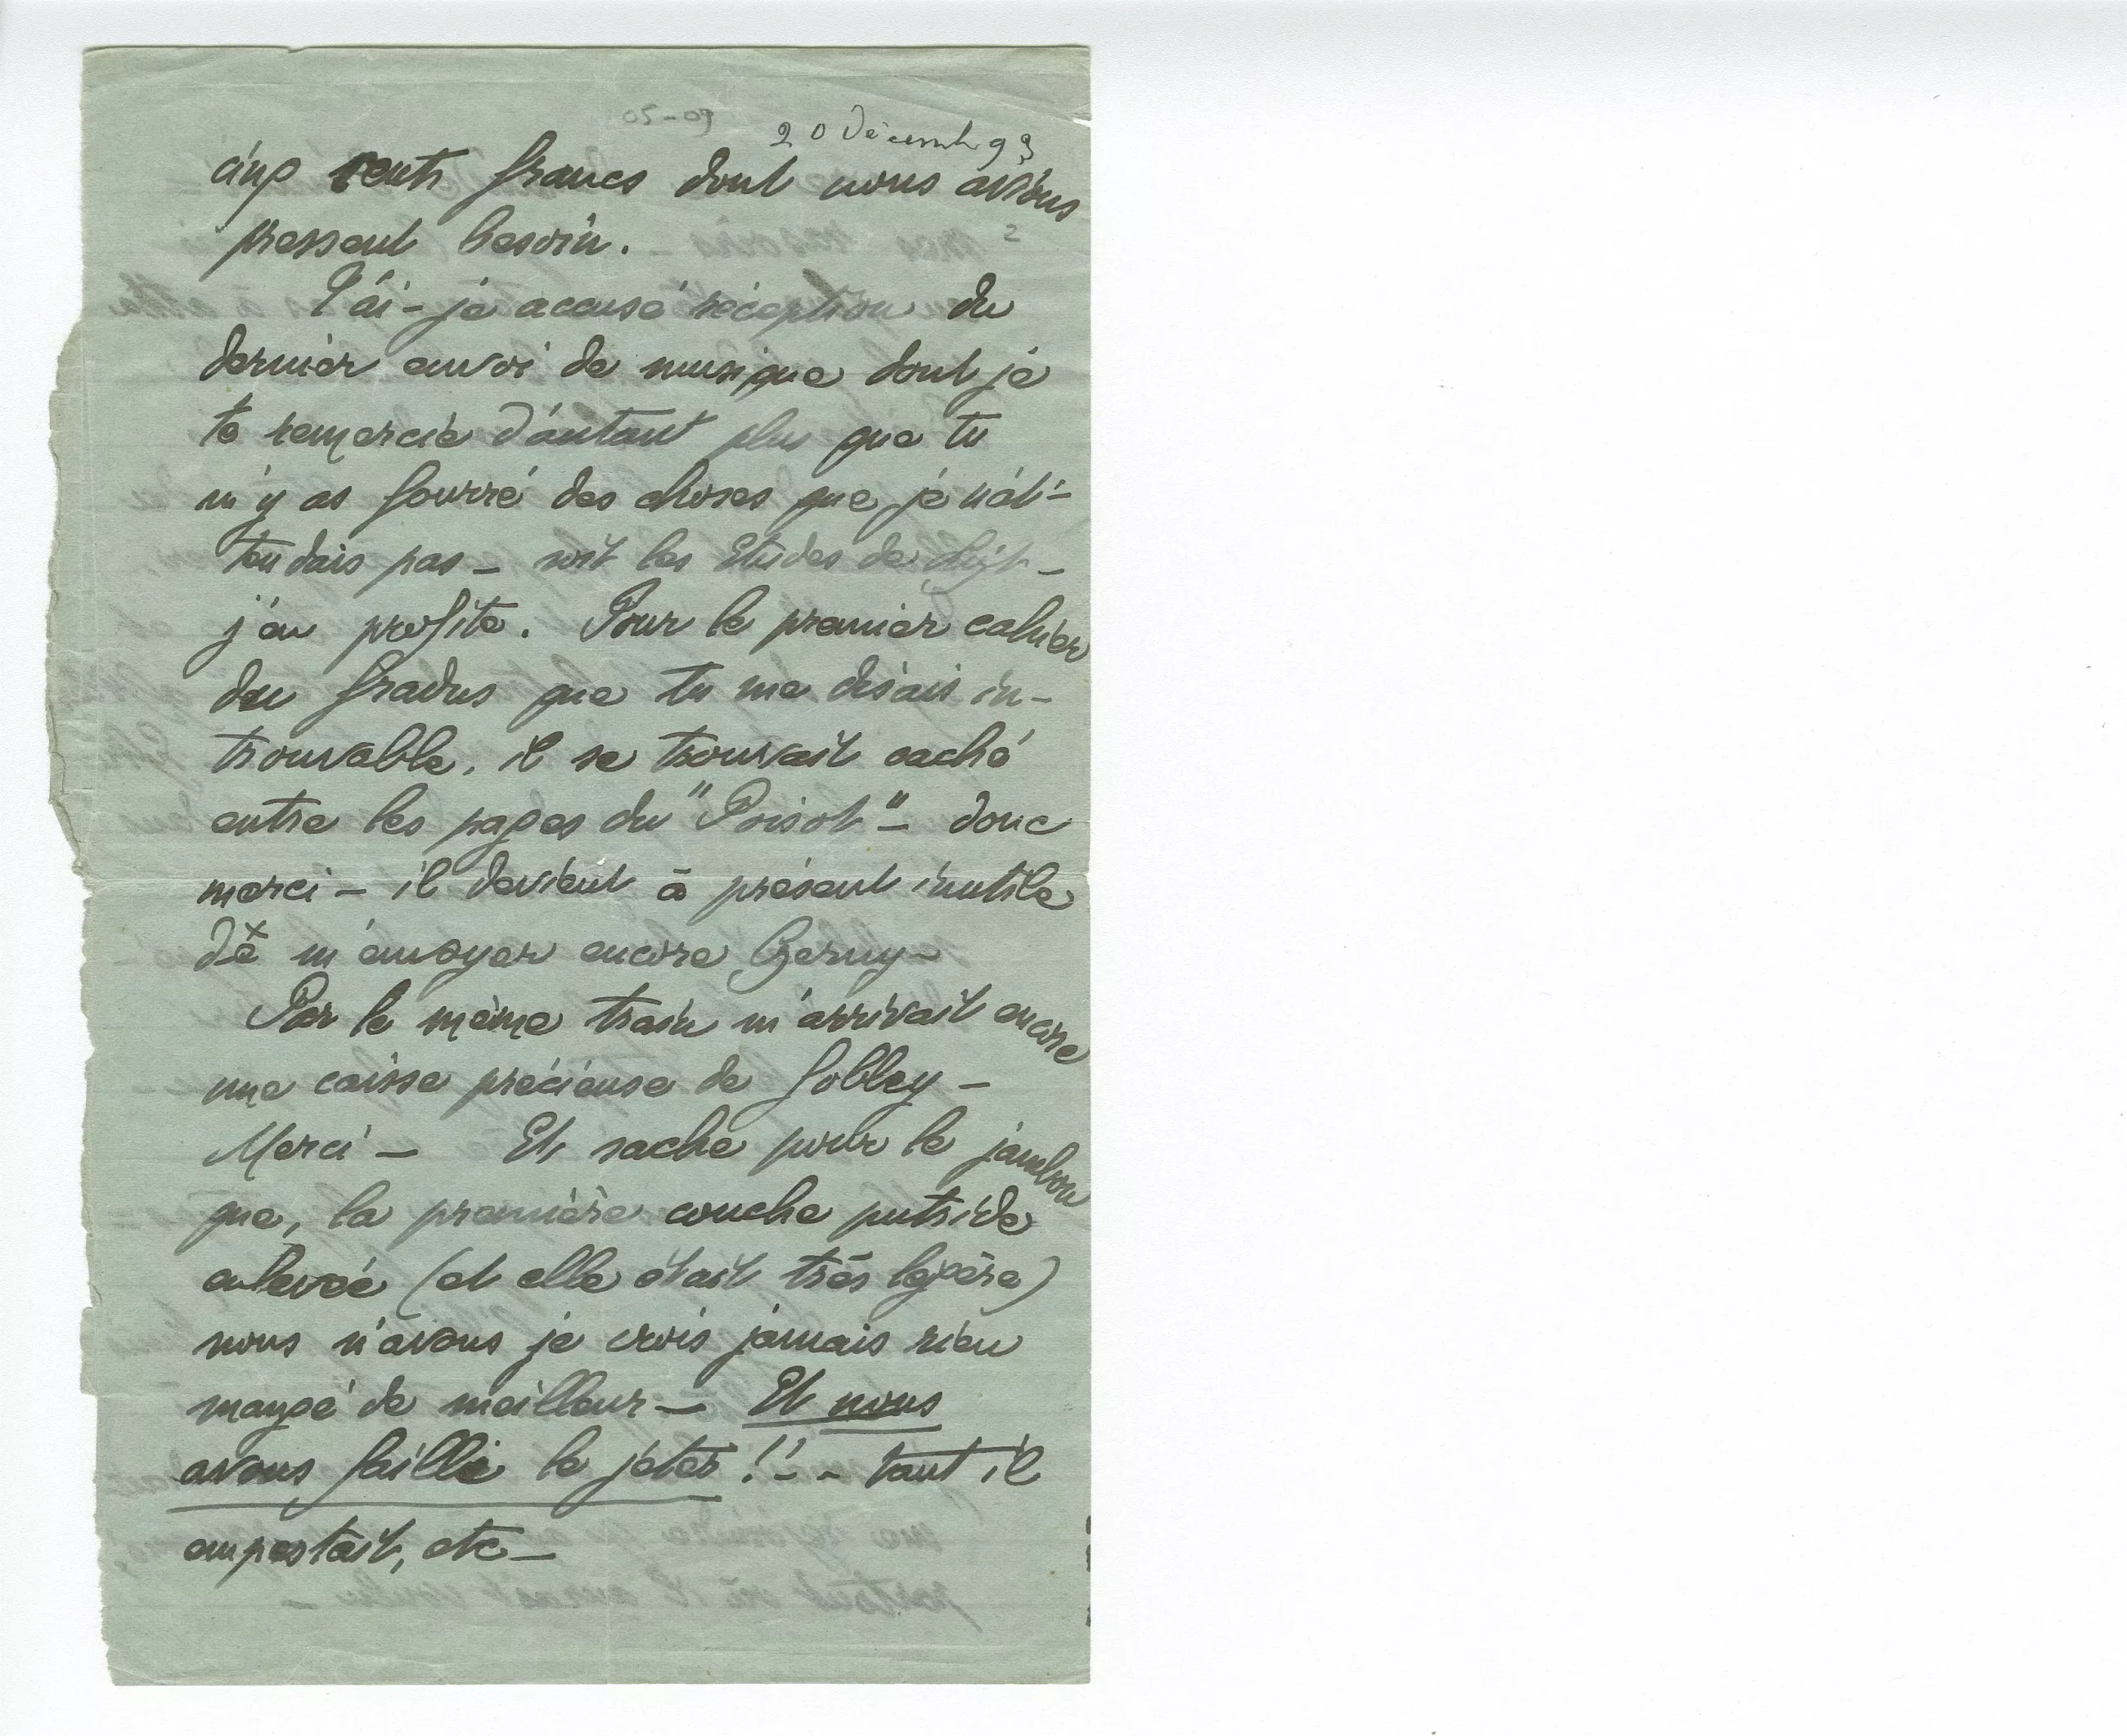 05-09
20 Décemb 93
cinq cents francs dont nous avions
2
pressent besoin.
T'ai-je accusé réception du
dernier envoi de musique dont je
te remercie d'autant plus que tu
m'y as fourré des choses que je n'at-
tendais pas – soit les Etudes de
j'en profite. Pour le premier cahier
du Gradus que tu me disais in-
trouvable, il se trouvait caché
entre les pages du "Poisot" – donc
merci – il devient à présent inutile
de m'envoyer encore Czerny –
Par le même train m'arrivait encore
une caisse précieuse de Jolley –
Merci – Et sache pour le jambon
que, la première couche putride
enlevée (et elle était très légère)
nous n'avons je crois jamais rien
mangé de meilleur – Et nous
avons failli le jeter !! – – tant il
empestait, etc –